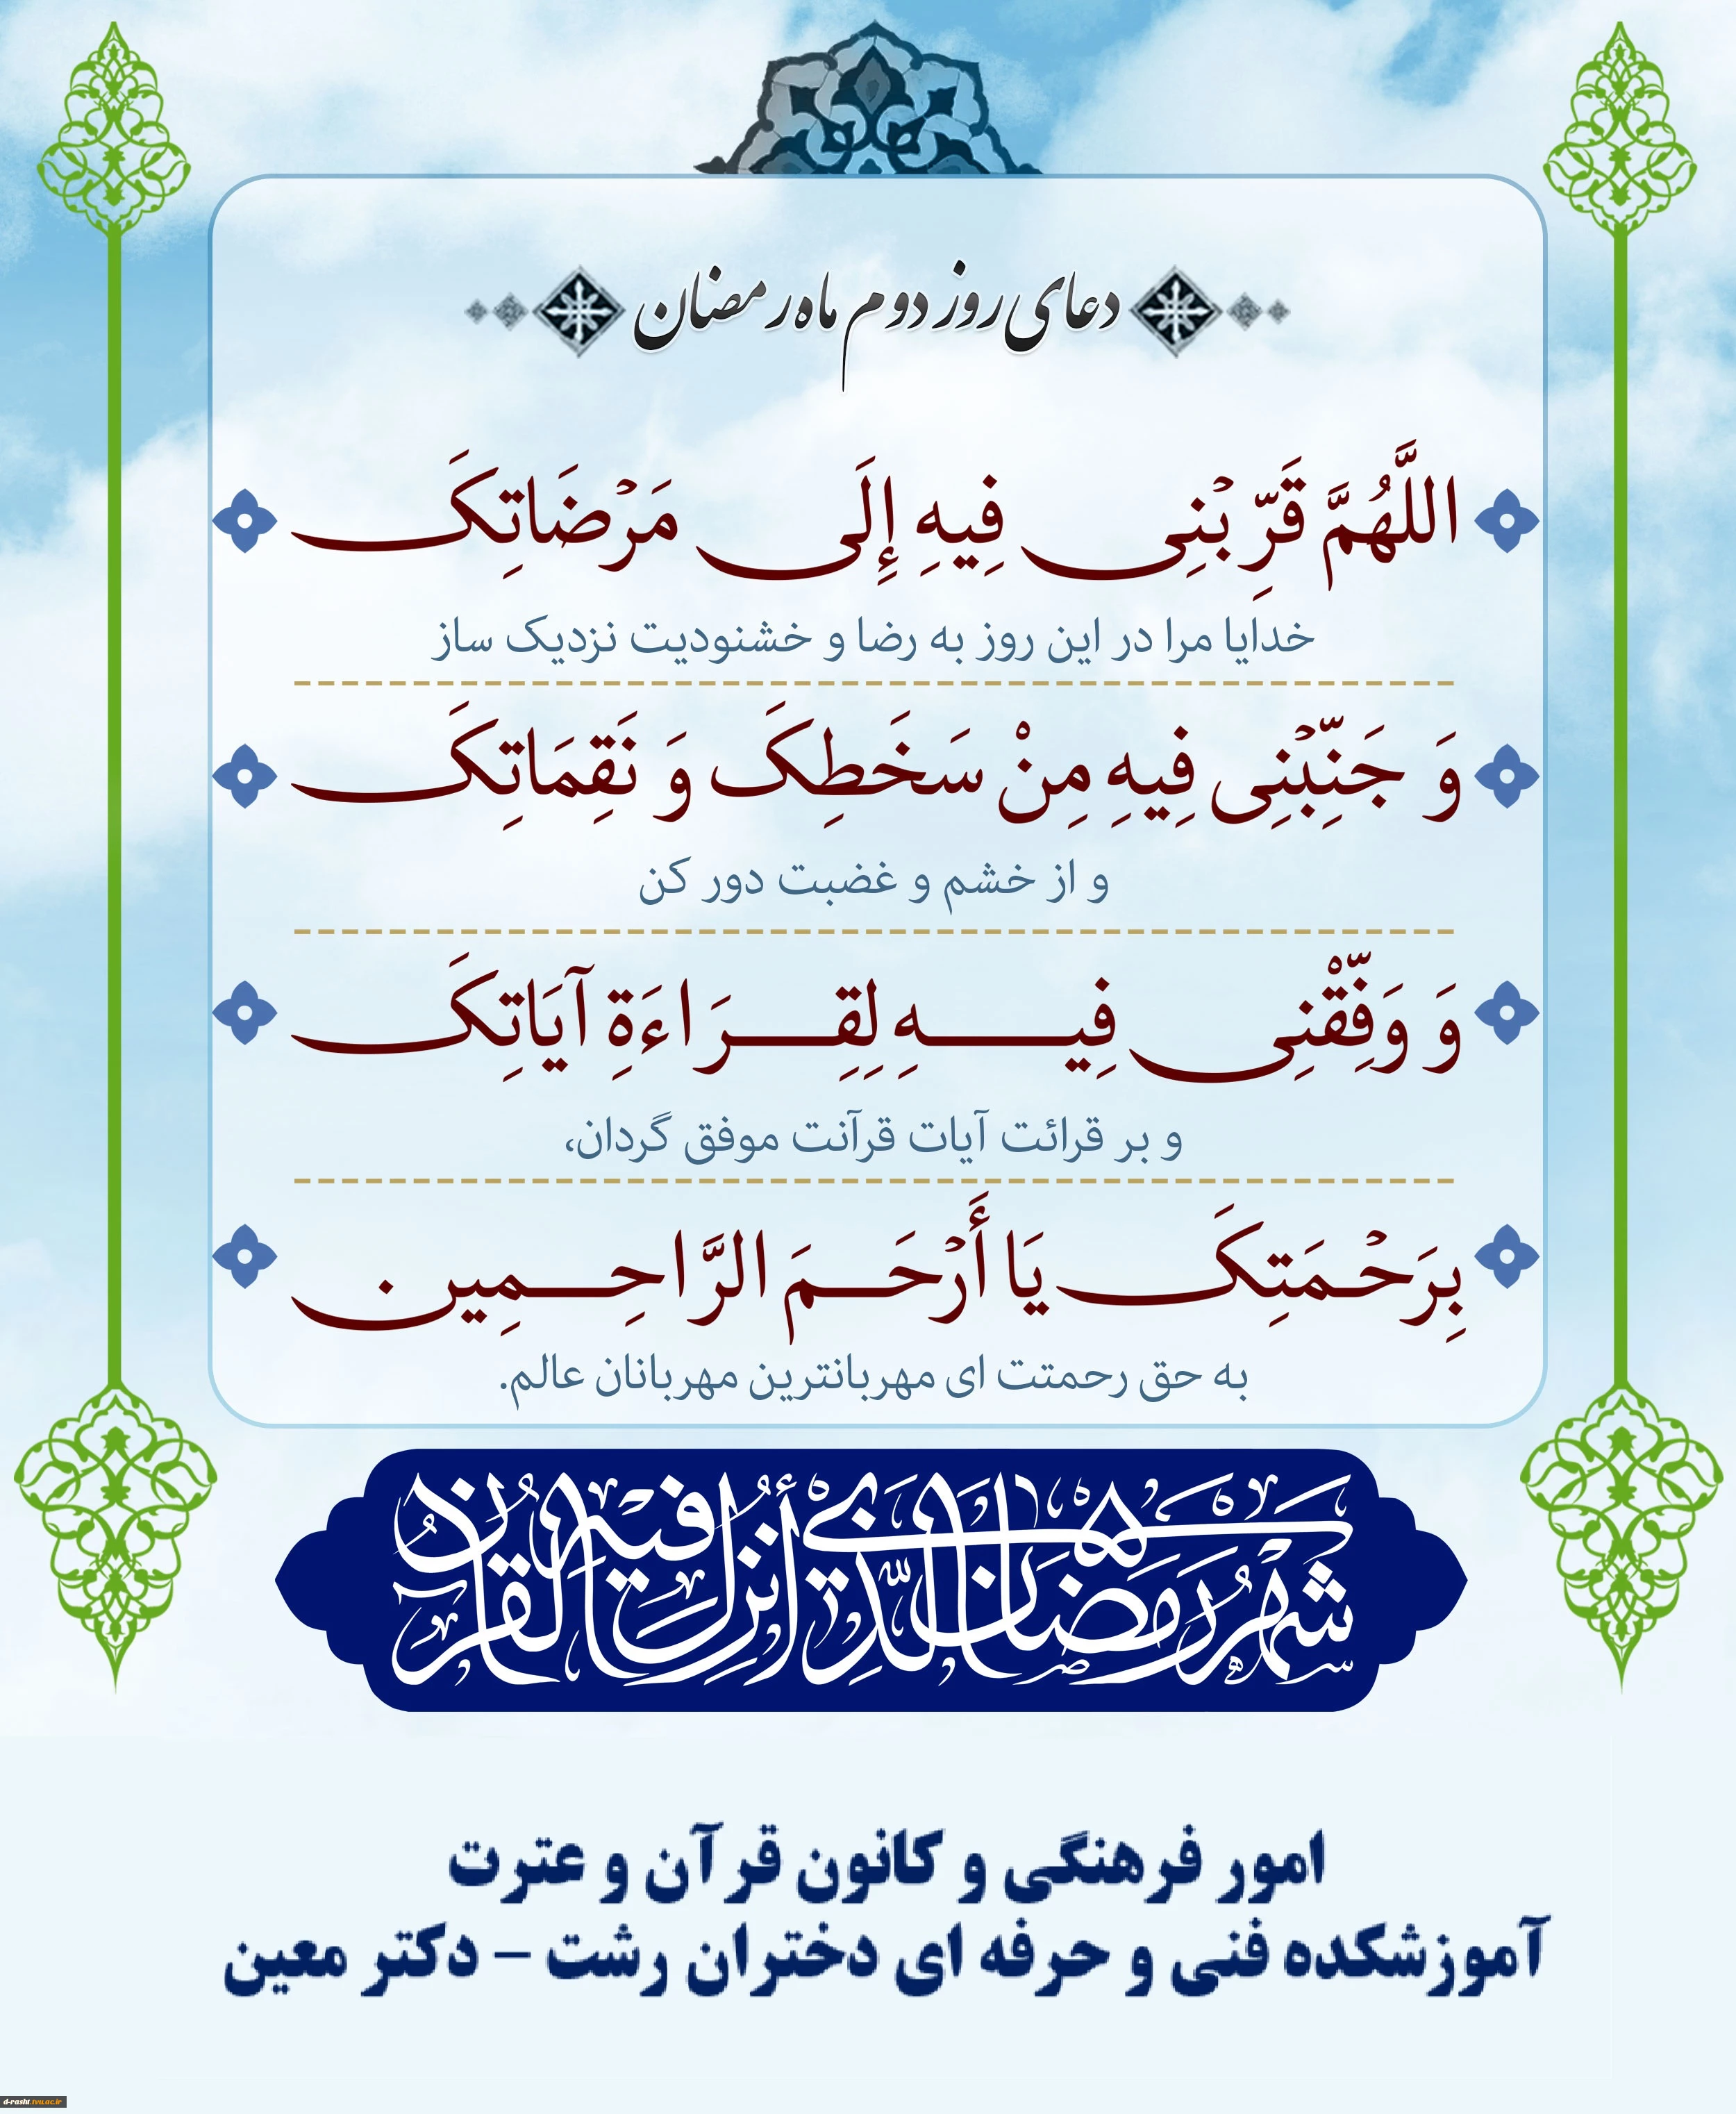 دعای روز دوم ماه رمضان
اللَّهُمَّ قَرِّبْنِی فِیهِ إِلَی مَرْضَاتِکَ
خدایا مرا در این روز به رضا و خشنودیت نزدیک ساز
وَ جَنِّبْنِی فِیهِ مِنْ سَخَطِکَ وَ نَقِمَاتِکَ
و از خشم و غضبت دور کن
وَ وَفِّقْنِی فِیهِ لِقِرَاءَةِ آیَاتِکَ
و بر قرائت آیات قرآنت موفق گردان،
بِرَحْمَتِکَ یَا أَرْحَمَ الرَّاحِمِین
به حق رحمتت ای مهربانترین مهربانان عالم.
شهر رمضان الذی أنزل فیه القرآن
امور فرهنگی و کانون قرآن و عترت
آموزشکده فنی و حرفه ای دختران رشت – دکتر معین
d-rasht.tvu.ac.ir